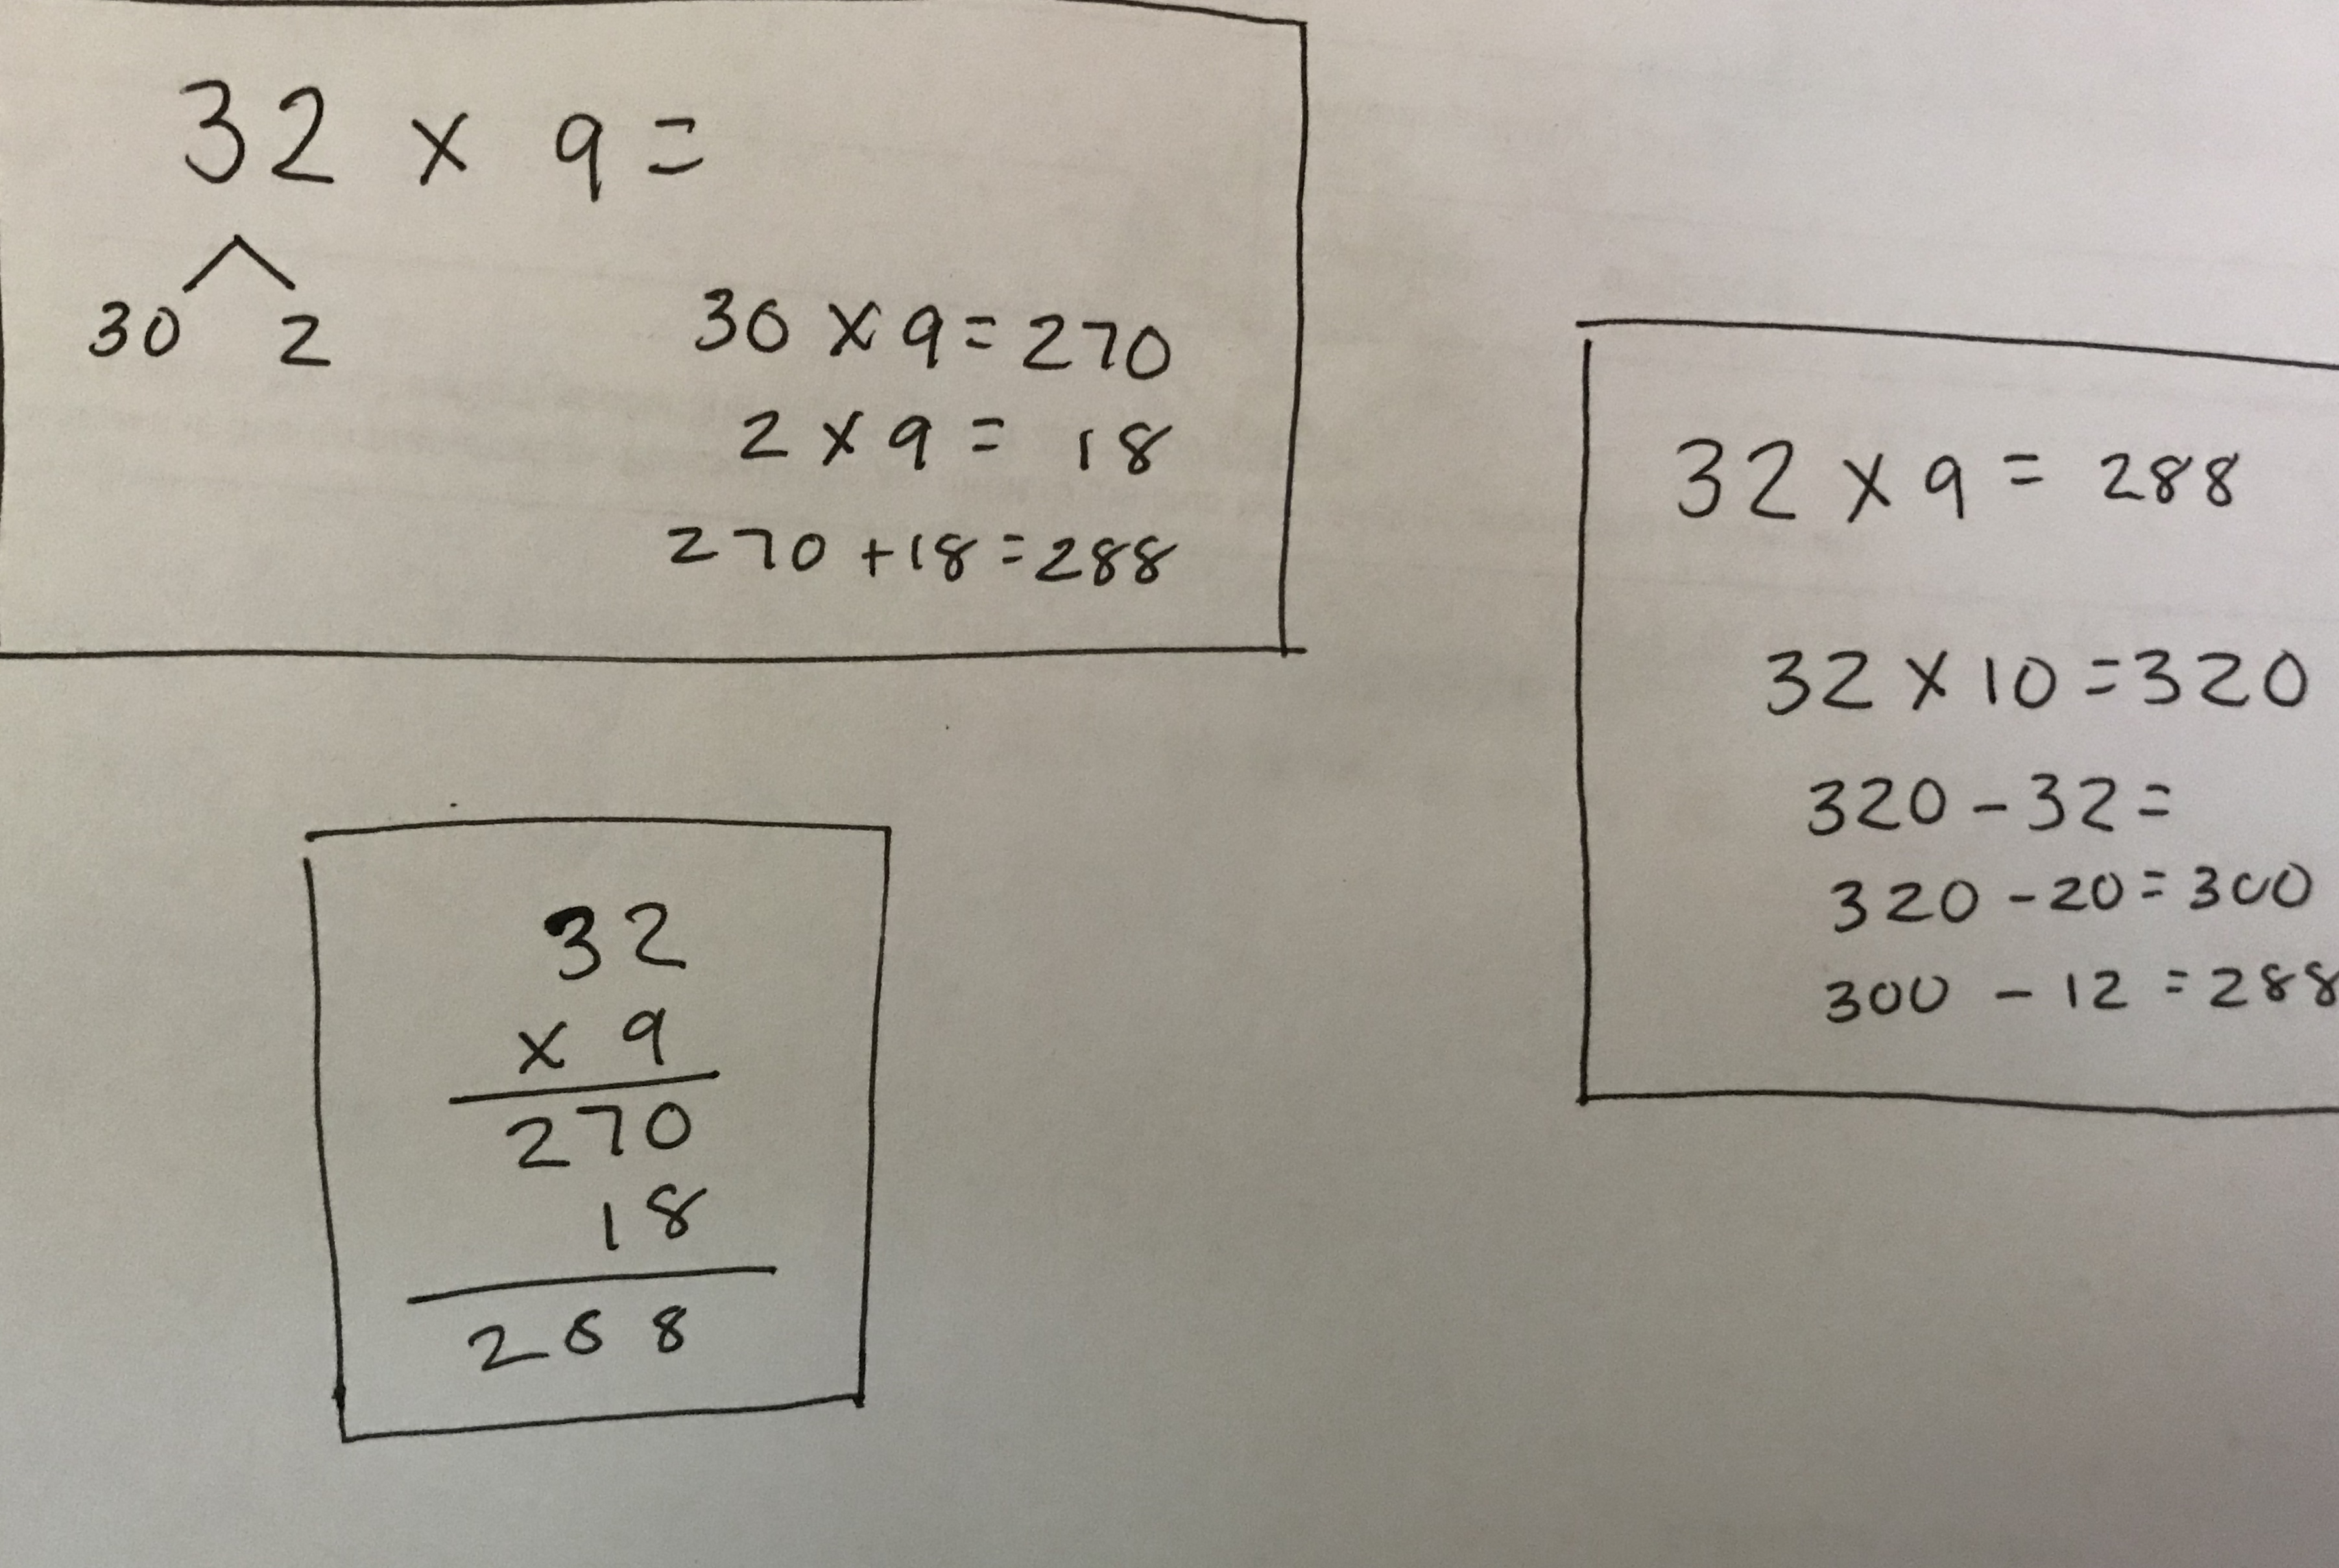 32 x 9 =
30 2
30 x 9 = 270
2 x 9 = 18
270 + 18 = 288
32 x 9 = 288
32 x 10 = 320
320 - 32 =
320 - 20 = 300
300 - 12 = 288
32
x 9
270
18
288